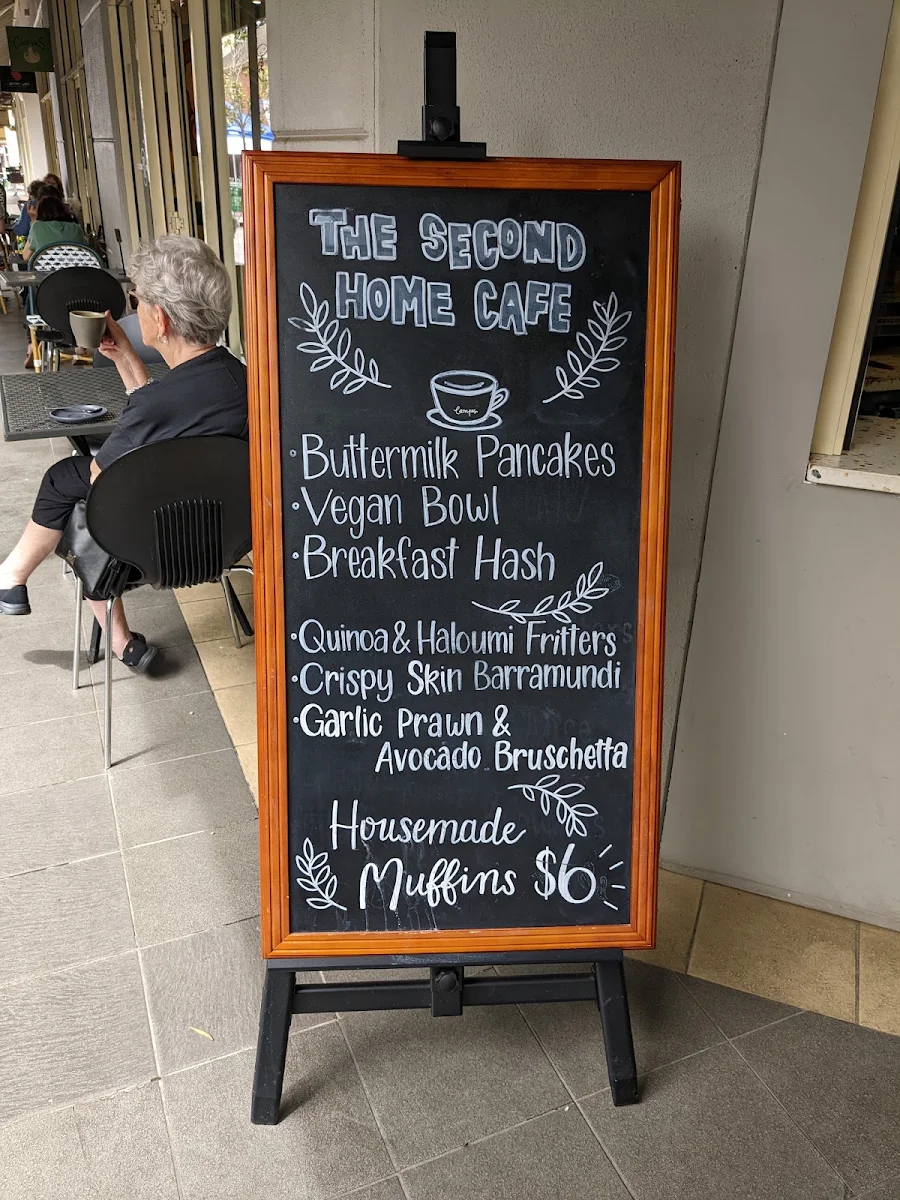 THE SECOND
HOME CAFE
Campos
• Buttermilk Pancakes
• Vegan Bowl
• Breakfast Hash
• Quinoa & Haloumi Fritters
• Crispy Skin Barramundi
• Garlic Prawn &
Avocado Bruschetta
Housemade
Muffins $6